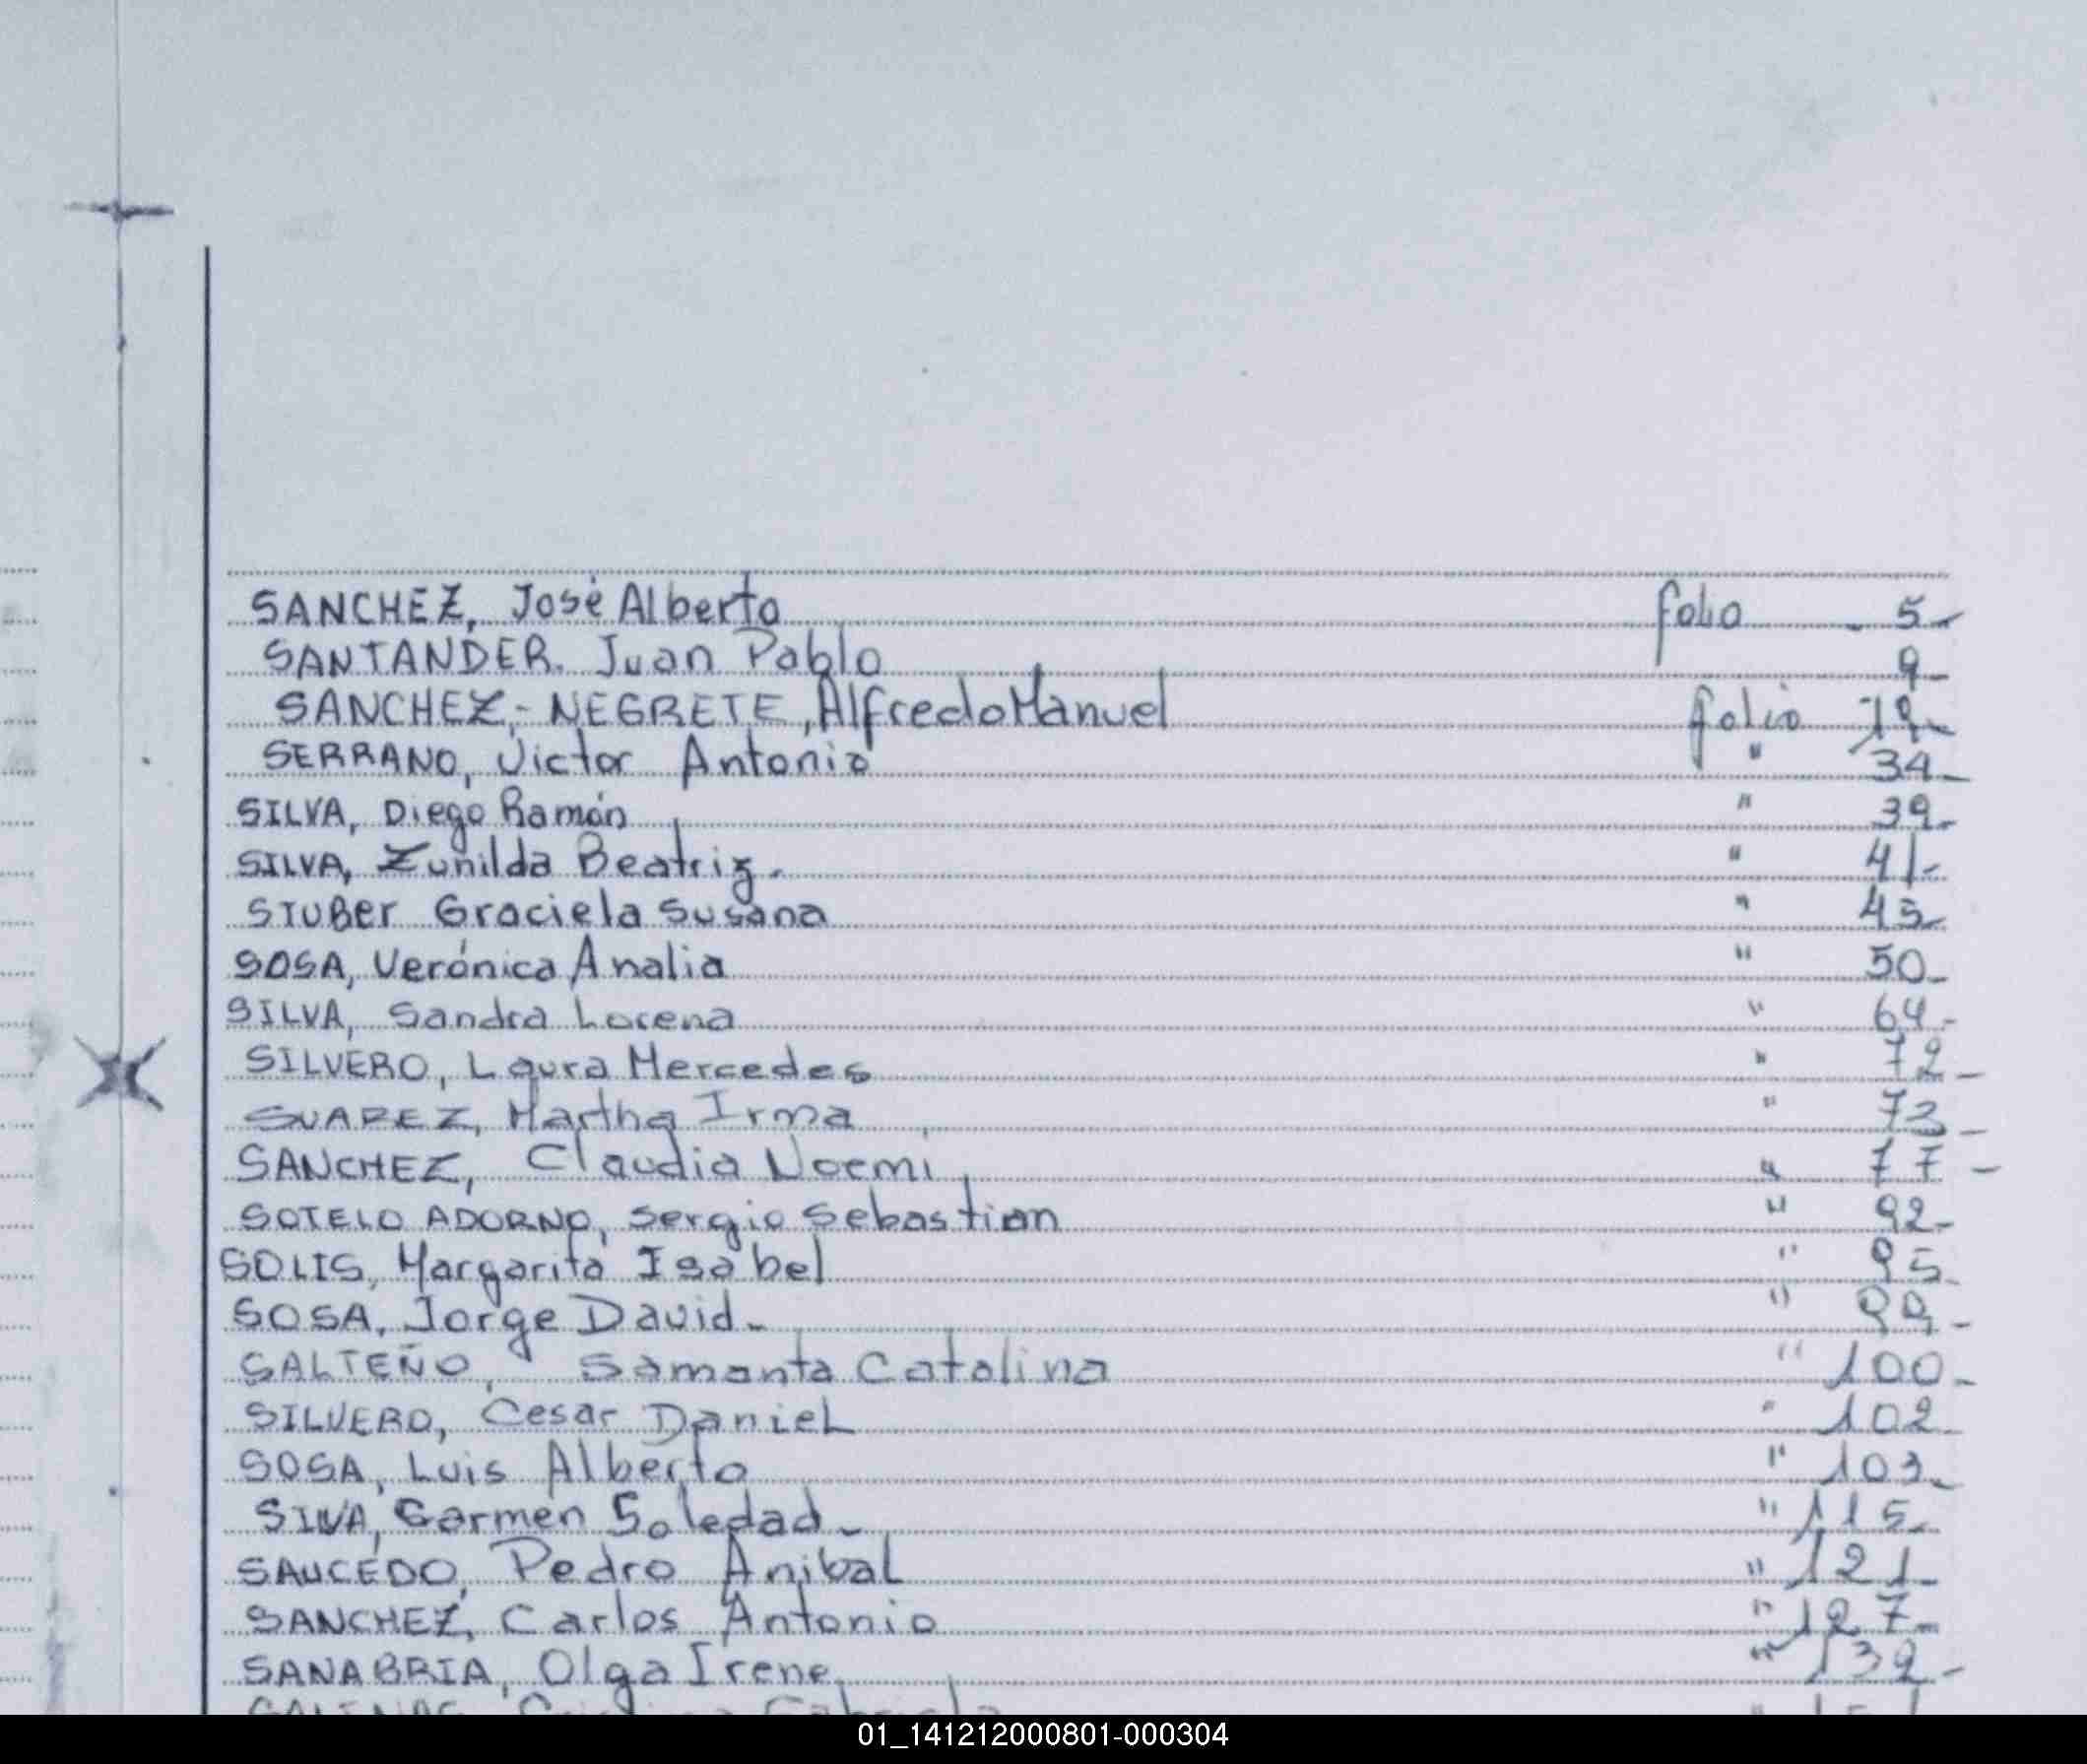 SANCHEZ, José Alberto folio - 5-
SANTANDER. Juan Pablo 9-
SANCHEZ-NEGRETE, Alfredo Manuel folio 19-
SERRANO, Victor Antonio " 34-
SILVA, Diego Ramón " 39-
SILVA, Zunilda Beatriz. " 41-
STUBer Graciela Susana " 45-
SOSA, Verónica Analia " 50-
SILVA, Sandra Lorena " 64-
SILVERO, Laura Mercedes " 72-
SUAREZ, Martha Irma " 73-
SANCHEZ, Claudia Noemi " 77-
SOTELO ADORNO, Sergio Sebastian " 92-
SOLIS, Margarita Isabel " 95-
SOSA, Jorge David- " 99-
SALTEÑO, Samanta Catalina " 100-
SILVERO, Cesar DanieL " 102
SOSA, Luis Alberto " 103-
SILVA, Carmen Soledad- " 115-
SAUCEDO, Pedro Anibal " 121-
SANCHEZ, Carlos Antonio " 127-
SANABRIA, Olga Irene "
01_141212000801-000304